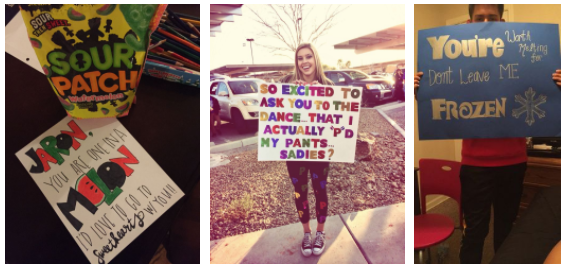 SOUR
PATCH
Watermelon
JARON,
YOU ARE ONE IN A
MELON
I'D LOVE TO GO TO
Sweethearts
W/ YOU!!
SO EXCITED TO
ASK YOU TO THE
DANCE...THAT I
ACTUALLY 'P'D
MY PANTS...
SADIES?
You're Worth
Melting
for
Dont Leave ME
FROZEN